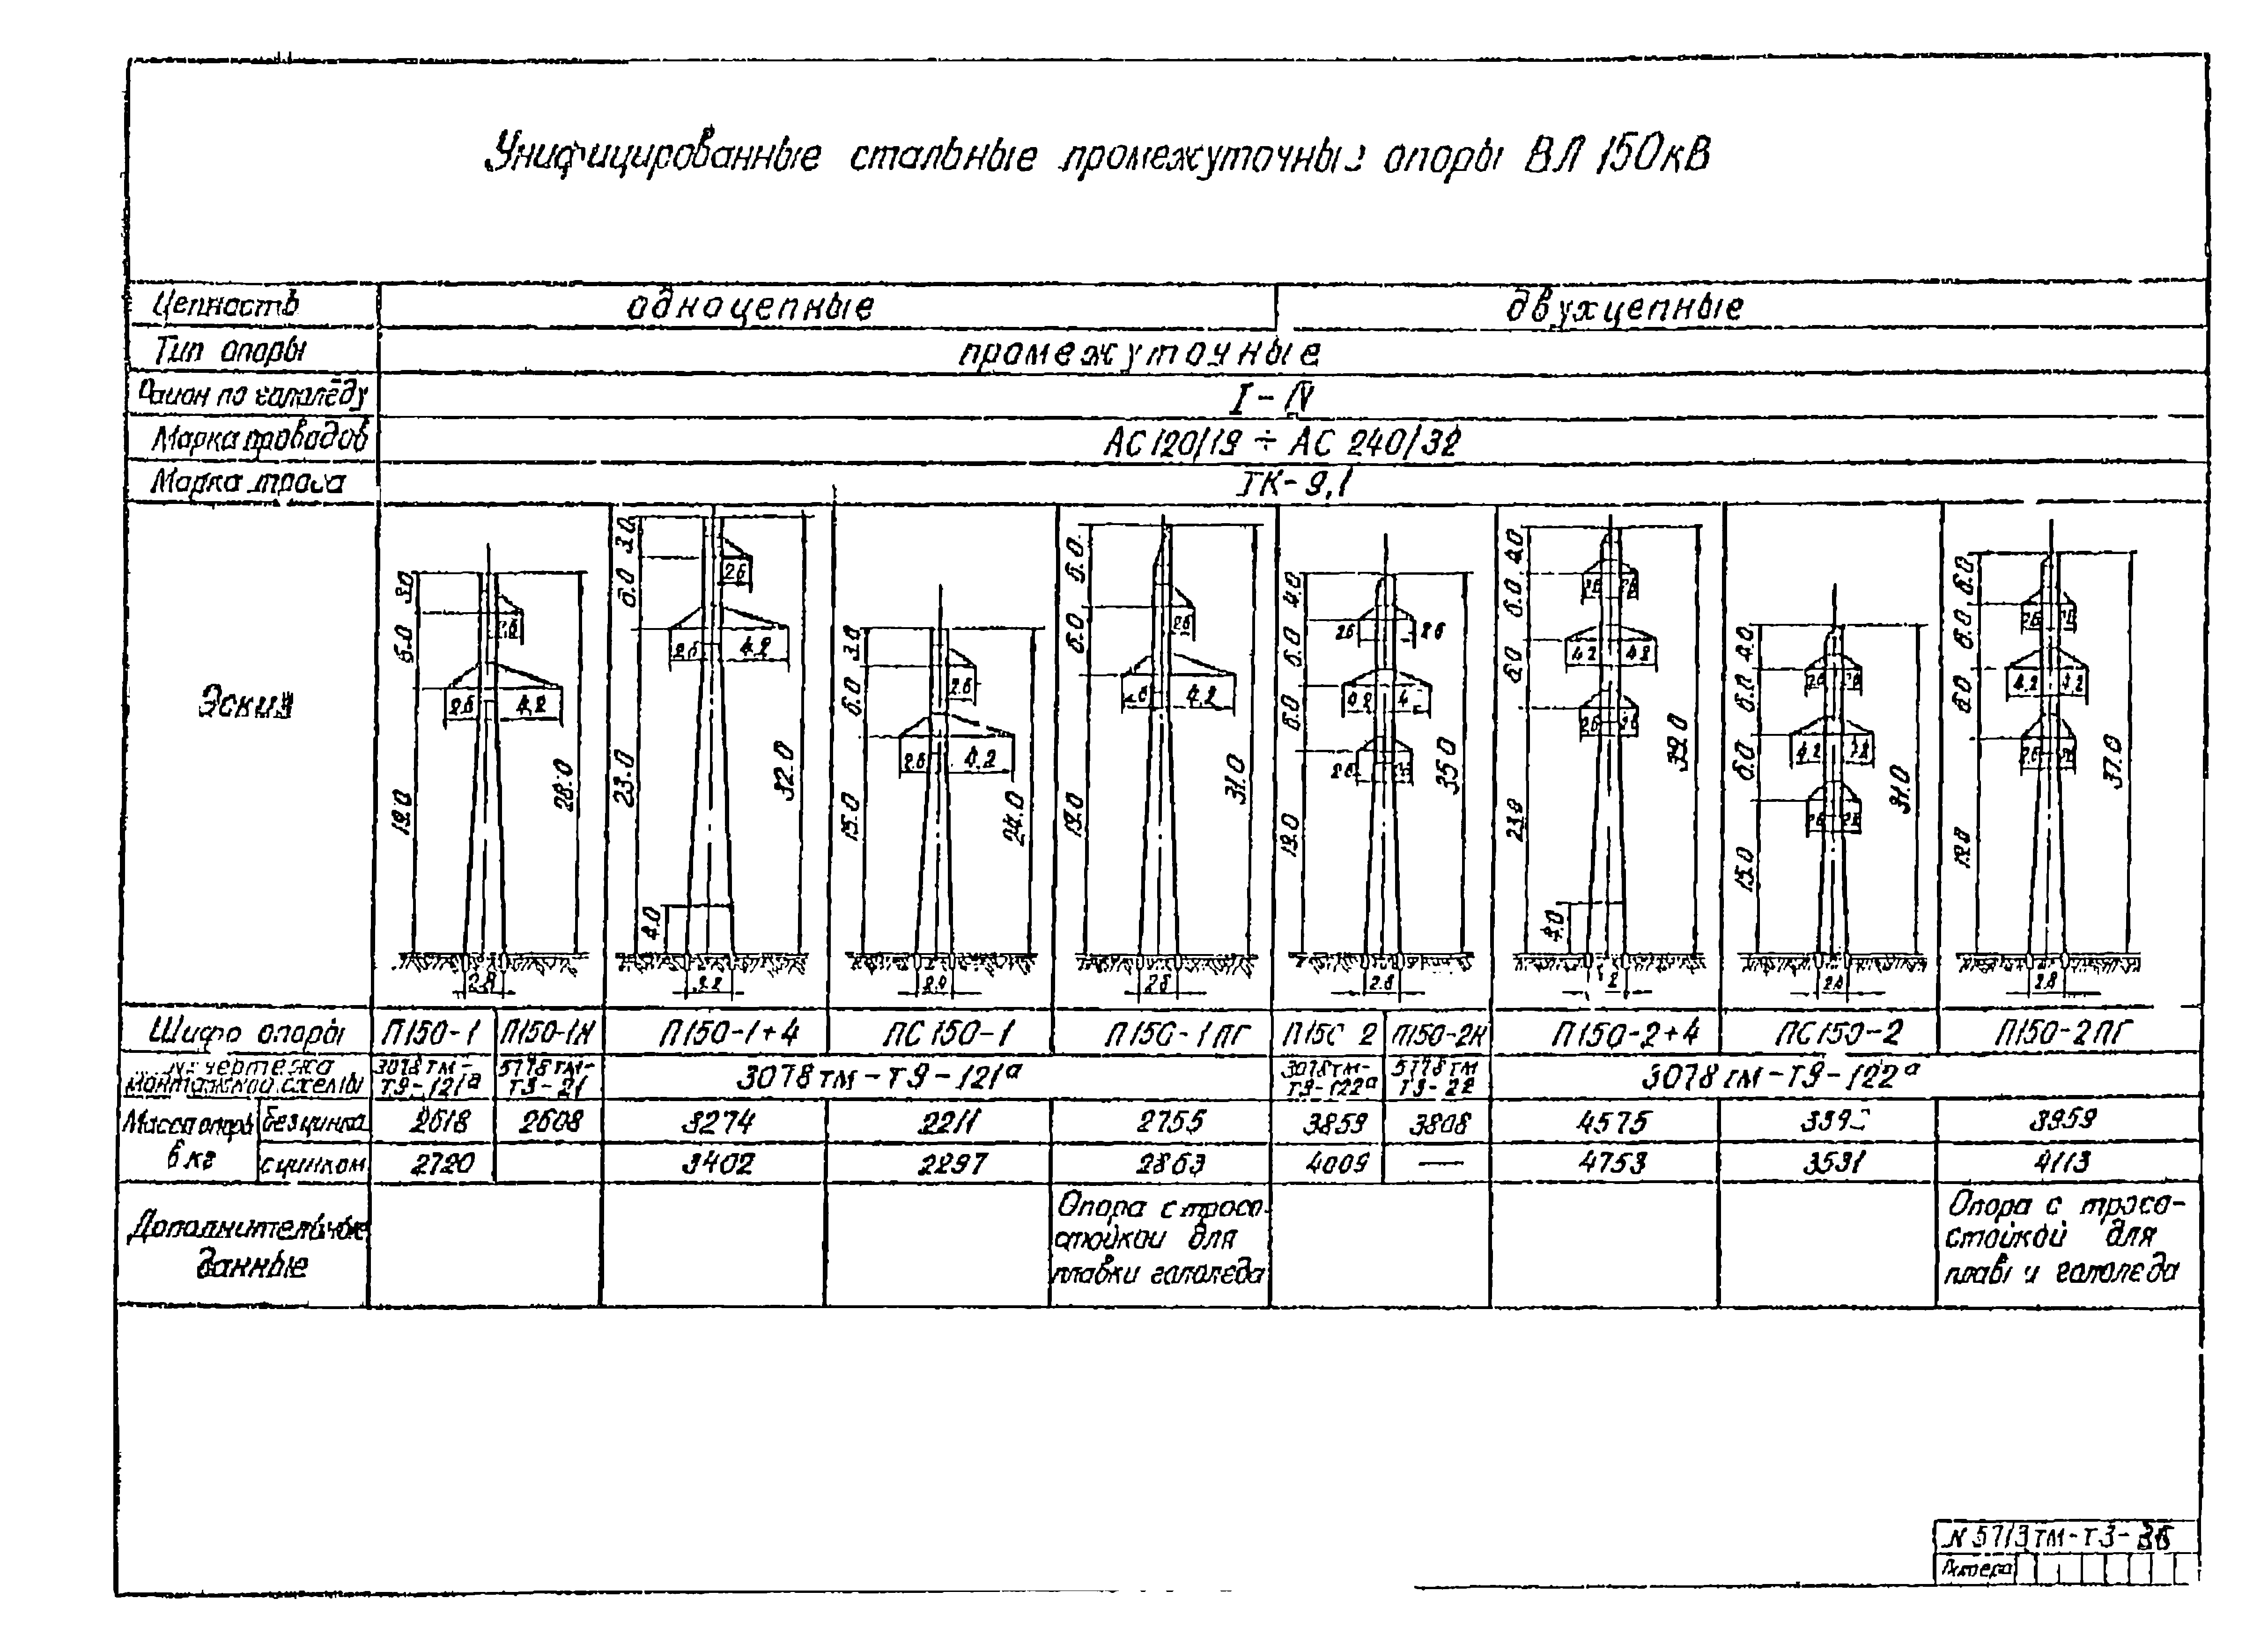 Унифицированные стальные промежуточные опоры ВЛ 150кВ
Цепность одноцепные двухцепные
Тип опоры промежуточные
Район по гололёду I - IV
Марка проводов АС 120/19 ÷ АС 240/32
Марка троса ТК-9,1
Эскиз
3.0 6.0 19.0 28.0 2.6 2.6 4.2 2.8
3.0 6.0 23.0 4.0 32.0 2.6 2.6 4.2 3.2
3.0 6.0 15.0 24.0 2.6 2.6 4.2
6.0 6.0 19.0 31.0 2.6 4.2 2.8
4.0 6.0 6.0 19.0 35.0 2.6 2.6 4.2 2.6 2.8
4.0 6.0 6.0 23.0 4.0 39.0 2.6 2.6 4.2 4.2 2.6 2.6
4.0 6.0 6.0 15.0 31.0 2.6 2.6 4.2 4.2 2.6 2.6
6.0 6.0 6.0 19.0 37.0 2.6 2.6 4.2 4.2 2.6 2.6 2.8
Шифр опоры П150-1 П150-1Н П150-1+4 ПС150-1 П150-1ПГ П150-2 П150-2Н П150-2+4 ПС150-2 П150-2ПГ
чертежа
монтажной схемы
3078тм-Т9-121а 5778тм-Т3-21 3078тм-Т9-121а 3078тм-Т9-122а 5778тм Т3-22 3078тм-Т9-122а
Масса опоры в кг
без цинка 2618 2608 3274 2211 2755 3859 3808 4575 3959
с цинком 2720 3402 2297 2863 4009 — 4753 3531 4113
Дополнительные
данные
Опора с тросо-
стойкой для
плавки гололеда
Опора с тросо-
стойкой для
плавки гололеда
N 5713тм-Т3-
Литера